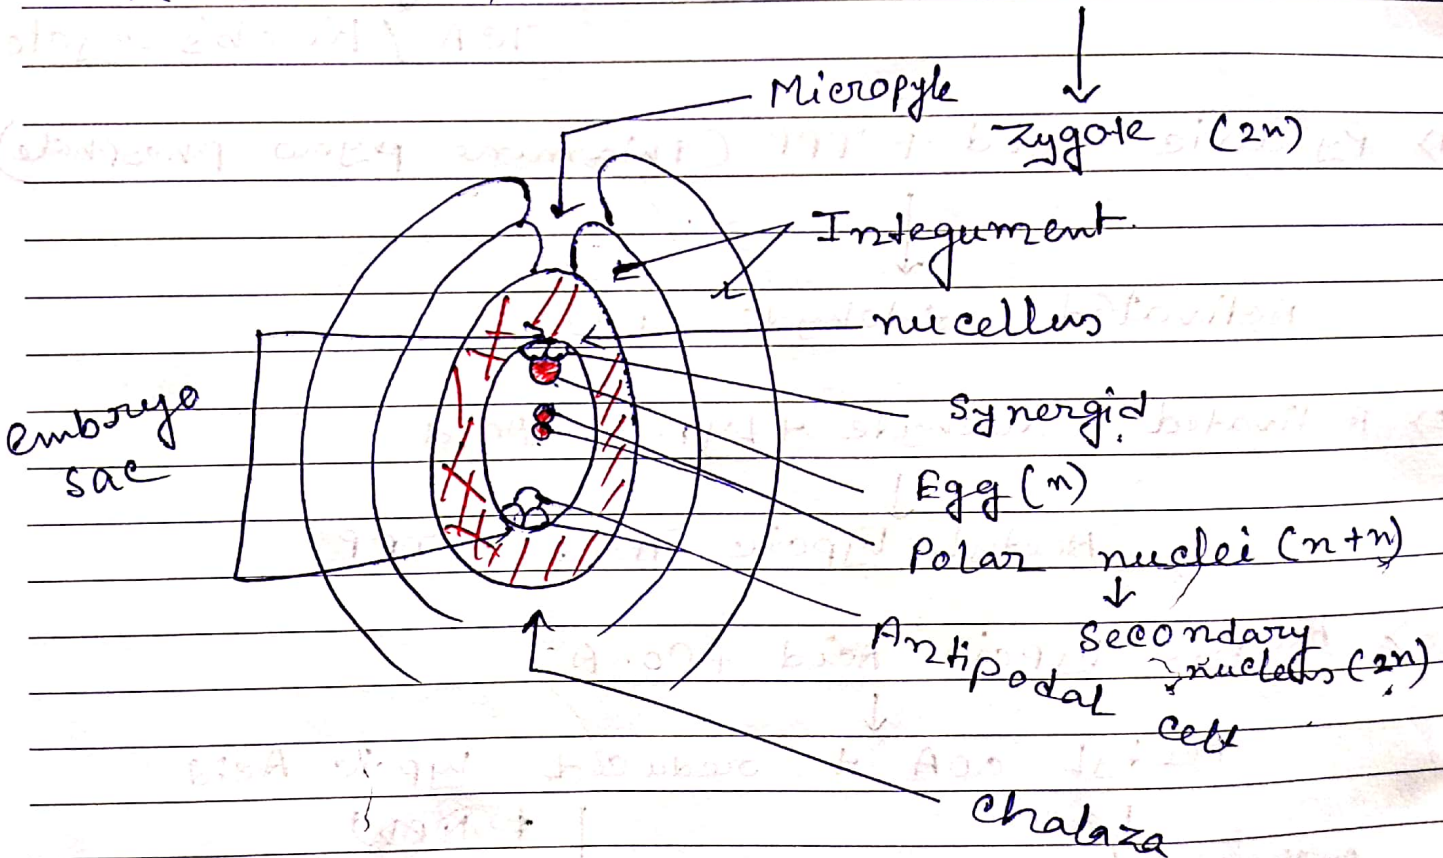 Micropyle
Zygote (2n)
Integument
nucellus
embryo
sac
Synergid
Egg (n)
Polar nuclei (n+n)
Secondary
nucleus (2n)
Antipodal
Cell
Chalaza